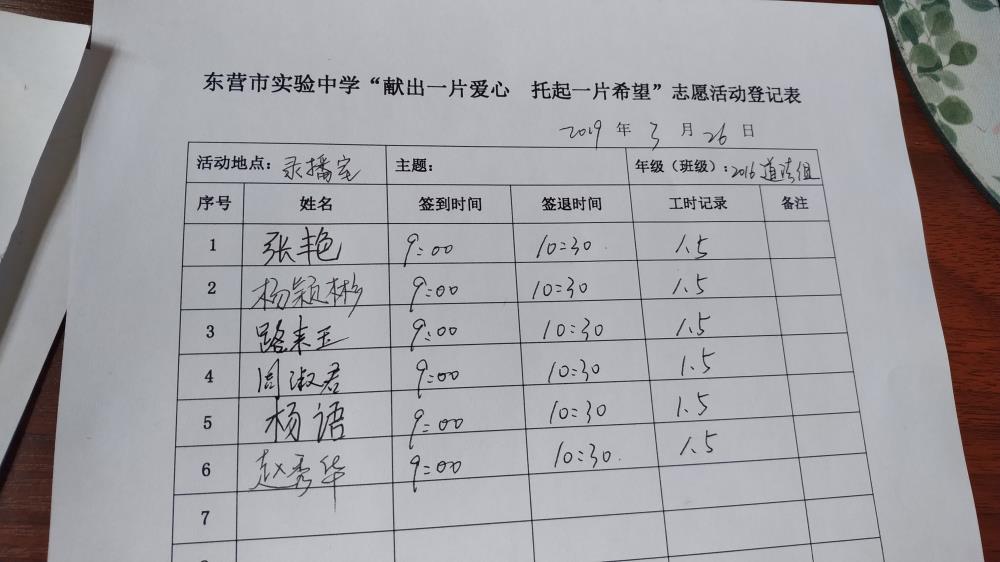 东营市实验中学“献出一片爱心 托起一片希望”志愿活动登记表
2019 年 3 月 26 日
活动地点：录播室 主题： 年级（班级）：2016道法组
序号 姓名 签到时间 签退时间 工时记录 备注
1 张艳 9:00 10:30 1.5
2 杨颖彬 9:00 10:30 1.5
3 路来玉 9:00 10:30 1.5
4 周淑君 9:00 10:30 1.5
5 杨语 9:00 10:30 1.5
6 赵秀华 9:00 10:30 1.5
7